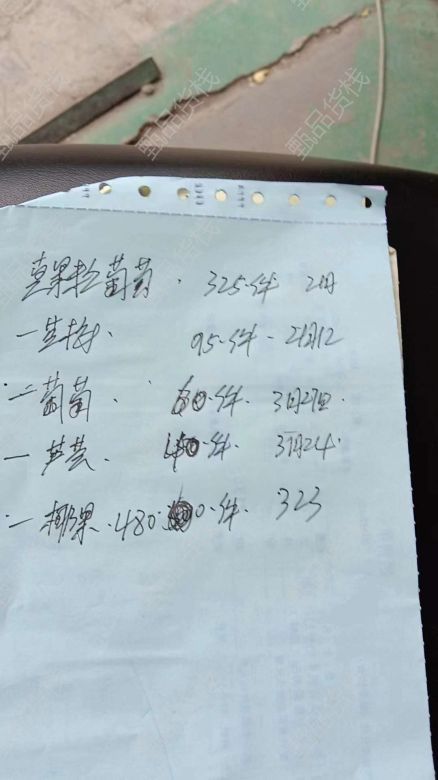 真果粒葡萄. 325.件 2月
一生打. 95.件. 2月12
二葡萄. 60.件. 3月27日.
一芦荟. 150.件. 3月24.
一椰果.480.件. 323
甄品货栈